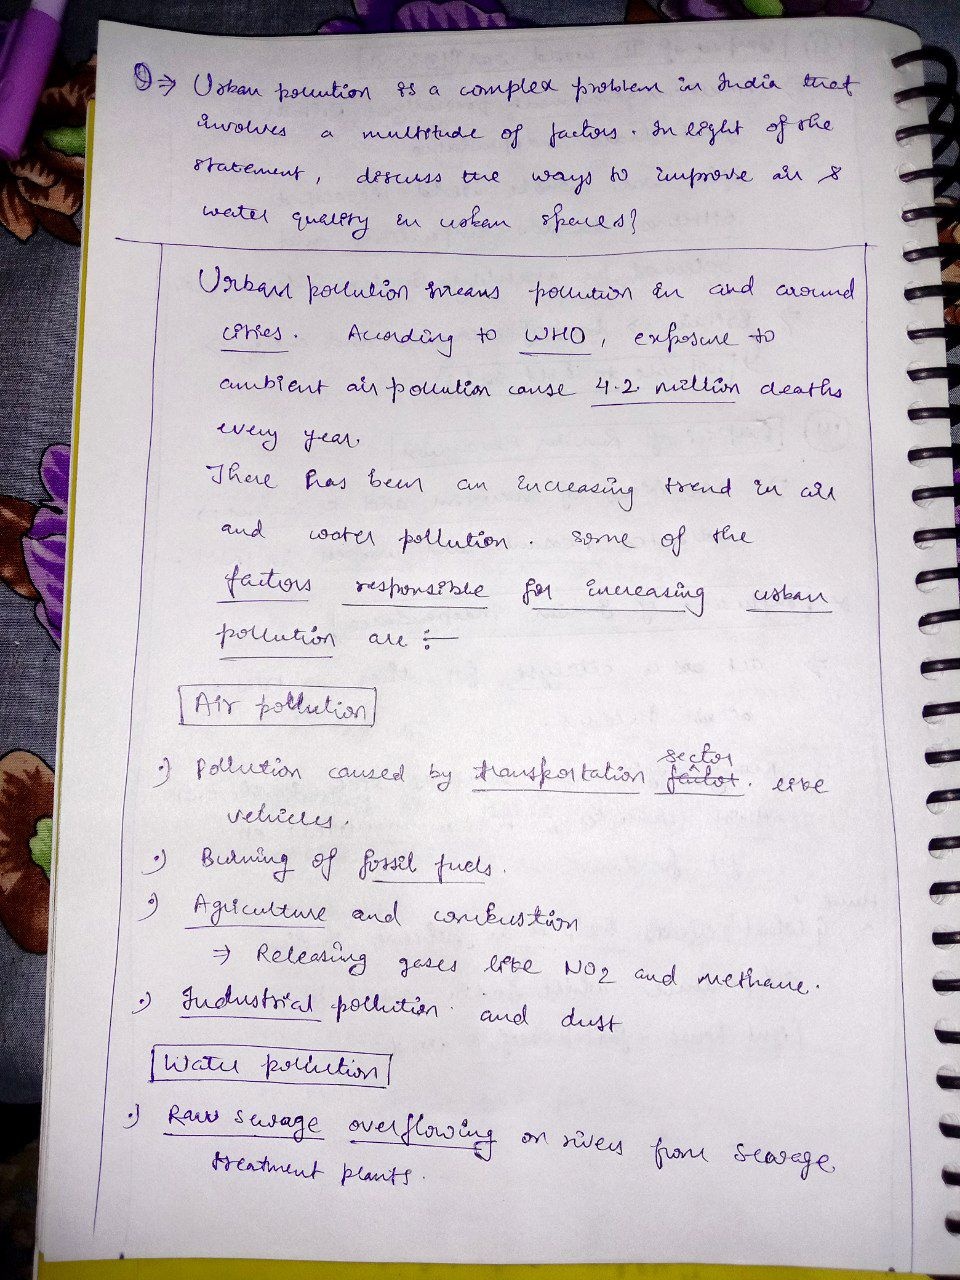 Q⇒ Urban pollution is a complex problem in India that
involves a multitude of factors. In light of the
statement, discuss the ways to improve air &
water quality in urban spaces?
Urban pollution means pollution in and around
cities. According to WHO, exposure to
ambient air pollution cause 4.2 million deaths
every year.
There has been an increasing trend in air
and water pollution. Some of the
factors responsible for increasing urban
pollution are :-
Air pollution
•) Pollution caused by transportation sector like
vehicles.
•) Burning of fossil fuels.
•) Agriculture and combustion
⇒ Releasing gases like NO2 and methane.
•) Industrial pollution and dust
Water pollution
•) Raw sewage overflowing on rivers from sewage
treatment plants.